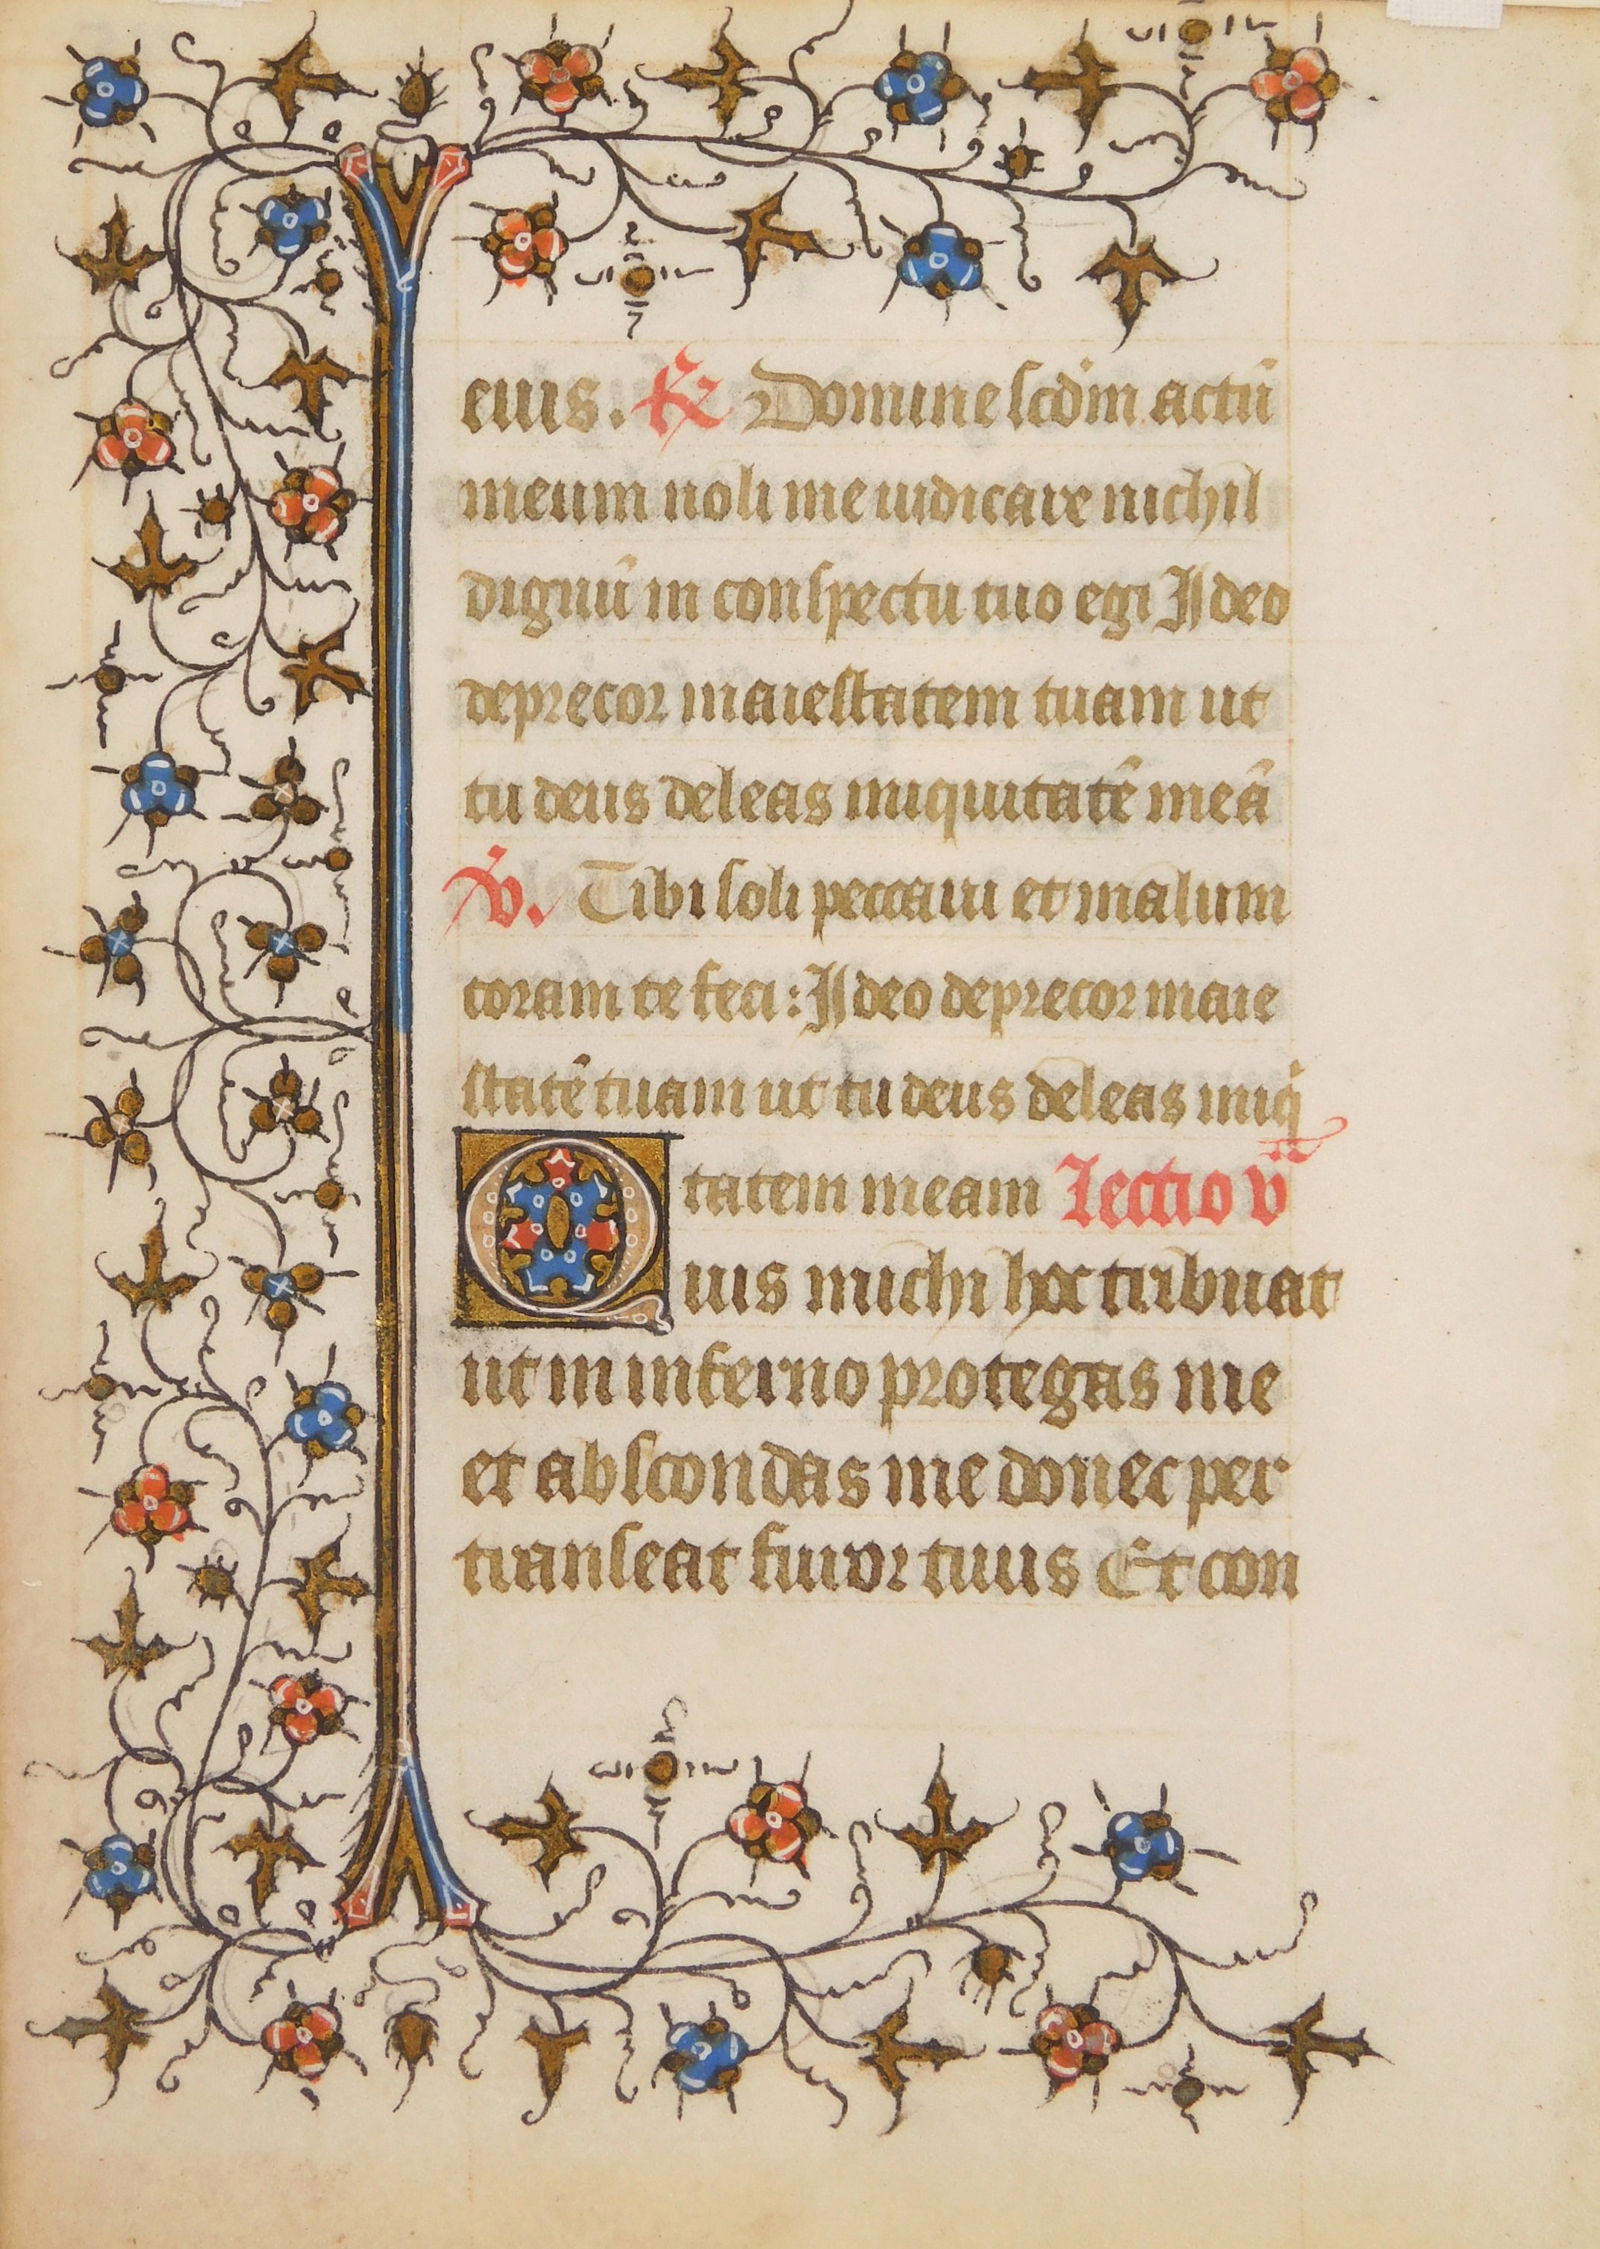 eius. ℟ Domine scdm̄ actū
meum noli me iudicare nichil
dignū in conspectu tuo egi Ideo
deprecor maiestatem tuam ut
tu deus deleas iniquitatē meā
℣. Tibi soli peccaui et malum
coram te feci: Ideo deprecor maie
statē tuam ut tu deus deleas iniq
tatem meam Lectio v
Quis michi hoc tribuat
ut in inferno protegas me
et abscondas me donec per
transeat furor tuus Et con